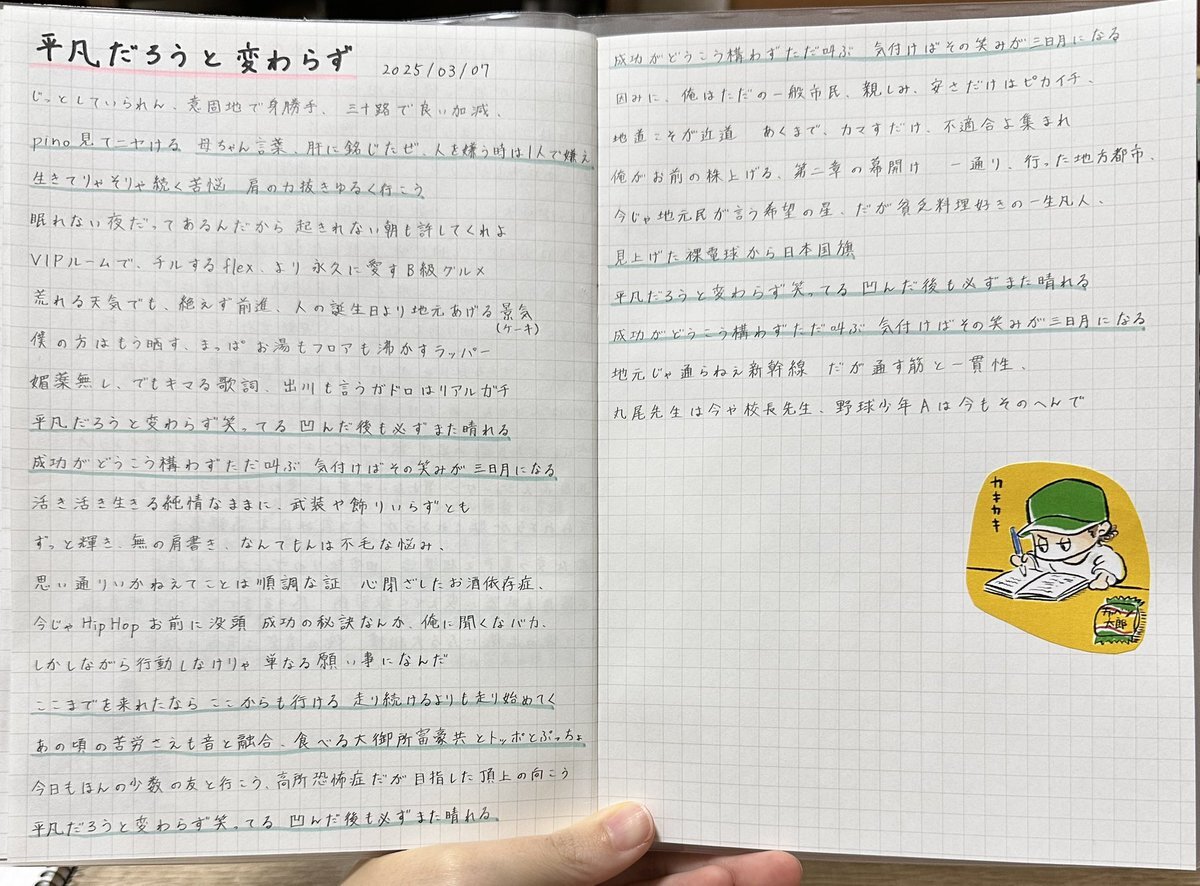 平凡だろうと変わらず 2025/03/07
じっとしていられん、意固地で身勝手、三十路で良い加減、
pino見てニヤける 母ちゃん言葉、肝に銘じたぜ、人を嫌う時は1人で嫌え
生きてりゃそりゃ続く苦悩 肩の力抜きゆるく行こう
眠れない夜だってあるんだから 起きれない朝も許してくれよ
VIPルームで、チルするflex、より永久に愛すB級グルメ
荒れる天気でも、絶えず前進、人の誕生日より地元あげる景気
(ケーキ)
僕の方はもう晒す、まっぱ お湯もフロアも沸かすラッパー
媚薬無し、でもキマる歌詞、出川も言うガドロはリアルガチ
平凡だろうと変わらず笑ってる 凹んだ後も必ずまた晴れる
成功がどうこう構わずただ叫ぶ 気付けばその笑みが三日月になる
活き活き生きる純情なままに、武装や飾りいらずとも
ずっと輝き、無の肩書き、なんてもんは不毛な悩み、
思い通りいかねえてことは順調な証 心閉ざしたお酒依存症、
今じゃHipHopお前に没頭 成功の秘訣なんか、俺に聞くなバカ、
しかしながら行動しなけりゃ 単なる願い事になんだ
ここまでを来れたなら ここからも行ける 走り続けるよりも走り始めてく
あの頃の苦労さえも音と融合、食べる大御所富豪共とトッポとぷっちょ
今日もほんの少数の友と行こう、高所恐怖症だが目指した頂上の向こう
平凡だろうと変わらず笑ってる 凹んだ後も必ずまた晴れる
成功がどうこう構わずただ叫ぶ 気付けばその笑みが三日月になる
因みに、俺はただの一般市民、親しみ、安さだけはピカイチ、
地道こそが近道 あくまで、カマすだけ、不適合よ集まれ
俺がお前の株上げる、第二章の幕開け 一通り、行った地方都市、
今じゃ地元民が言う希望の星、だが貧乏料理好きの一生凡人、
見上げた裸電球から日本国旗
平凡だろうと変わらず笑ってる 凹んだ後も必ずまた晴れる
成功がどうこう構わずただ叫ぶ 気付けばその笑みが三日月になる
地元じゃ通らねえ新幹線 だが通す筋と一貫性、
丸尾先生は今や校長先生、野球少年Aは今もそのへんで
カキカキ
太郎